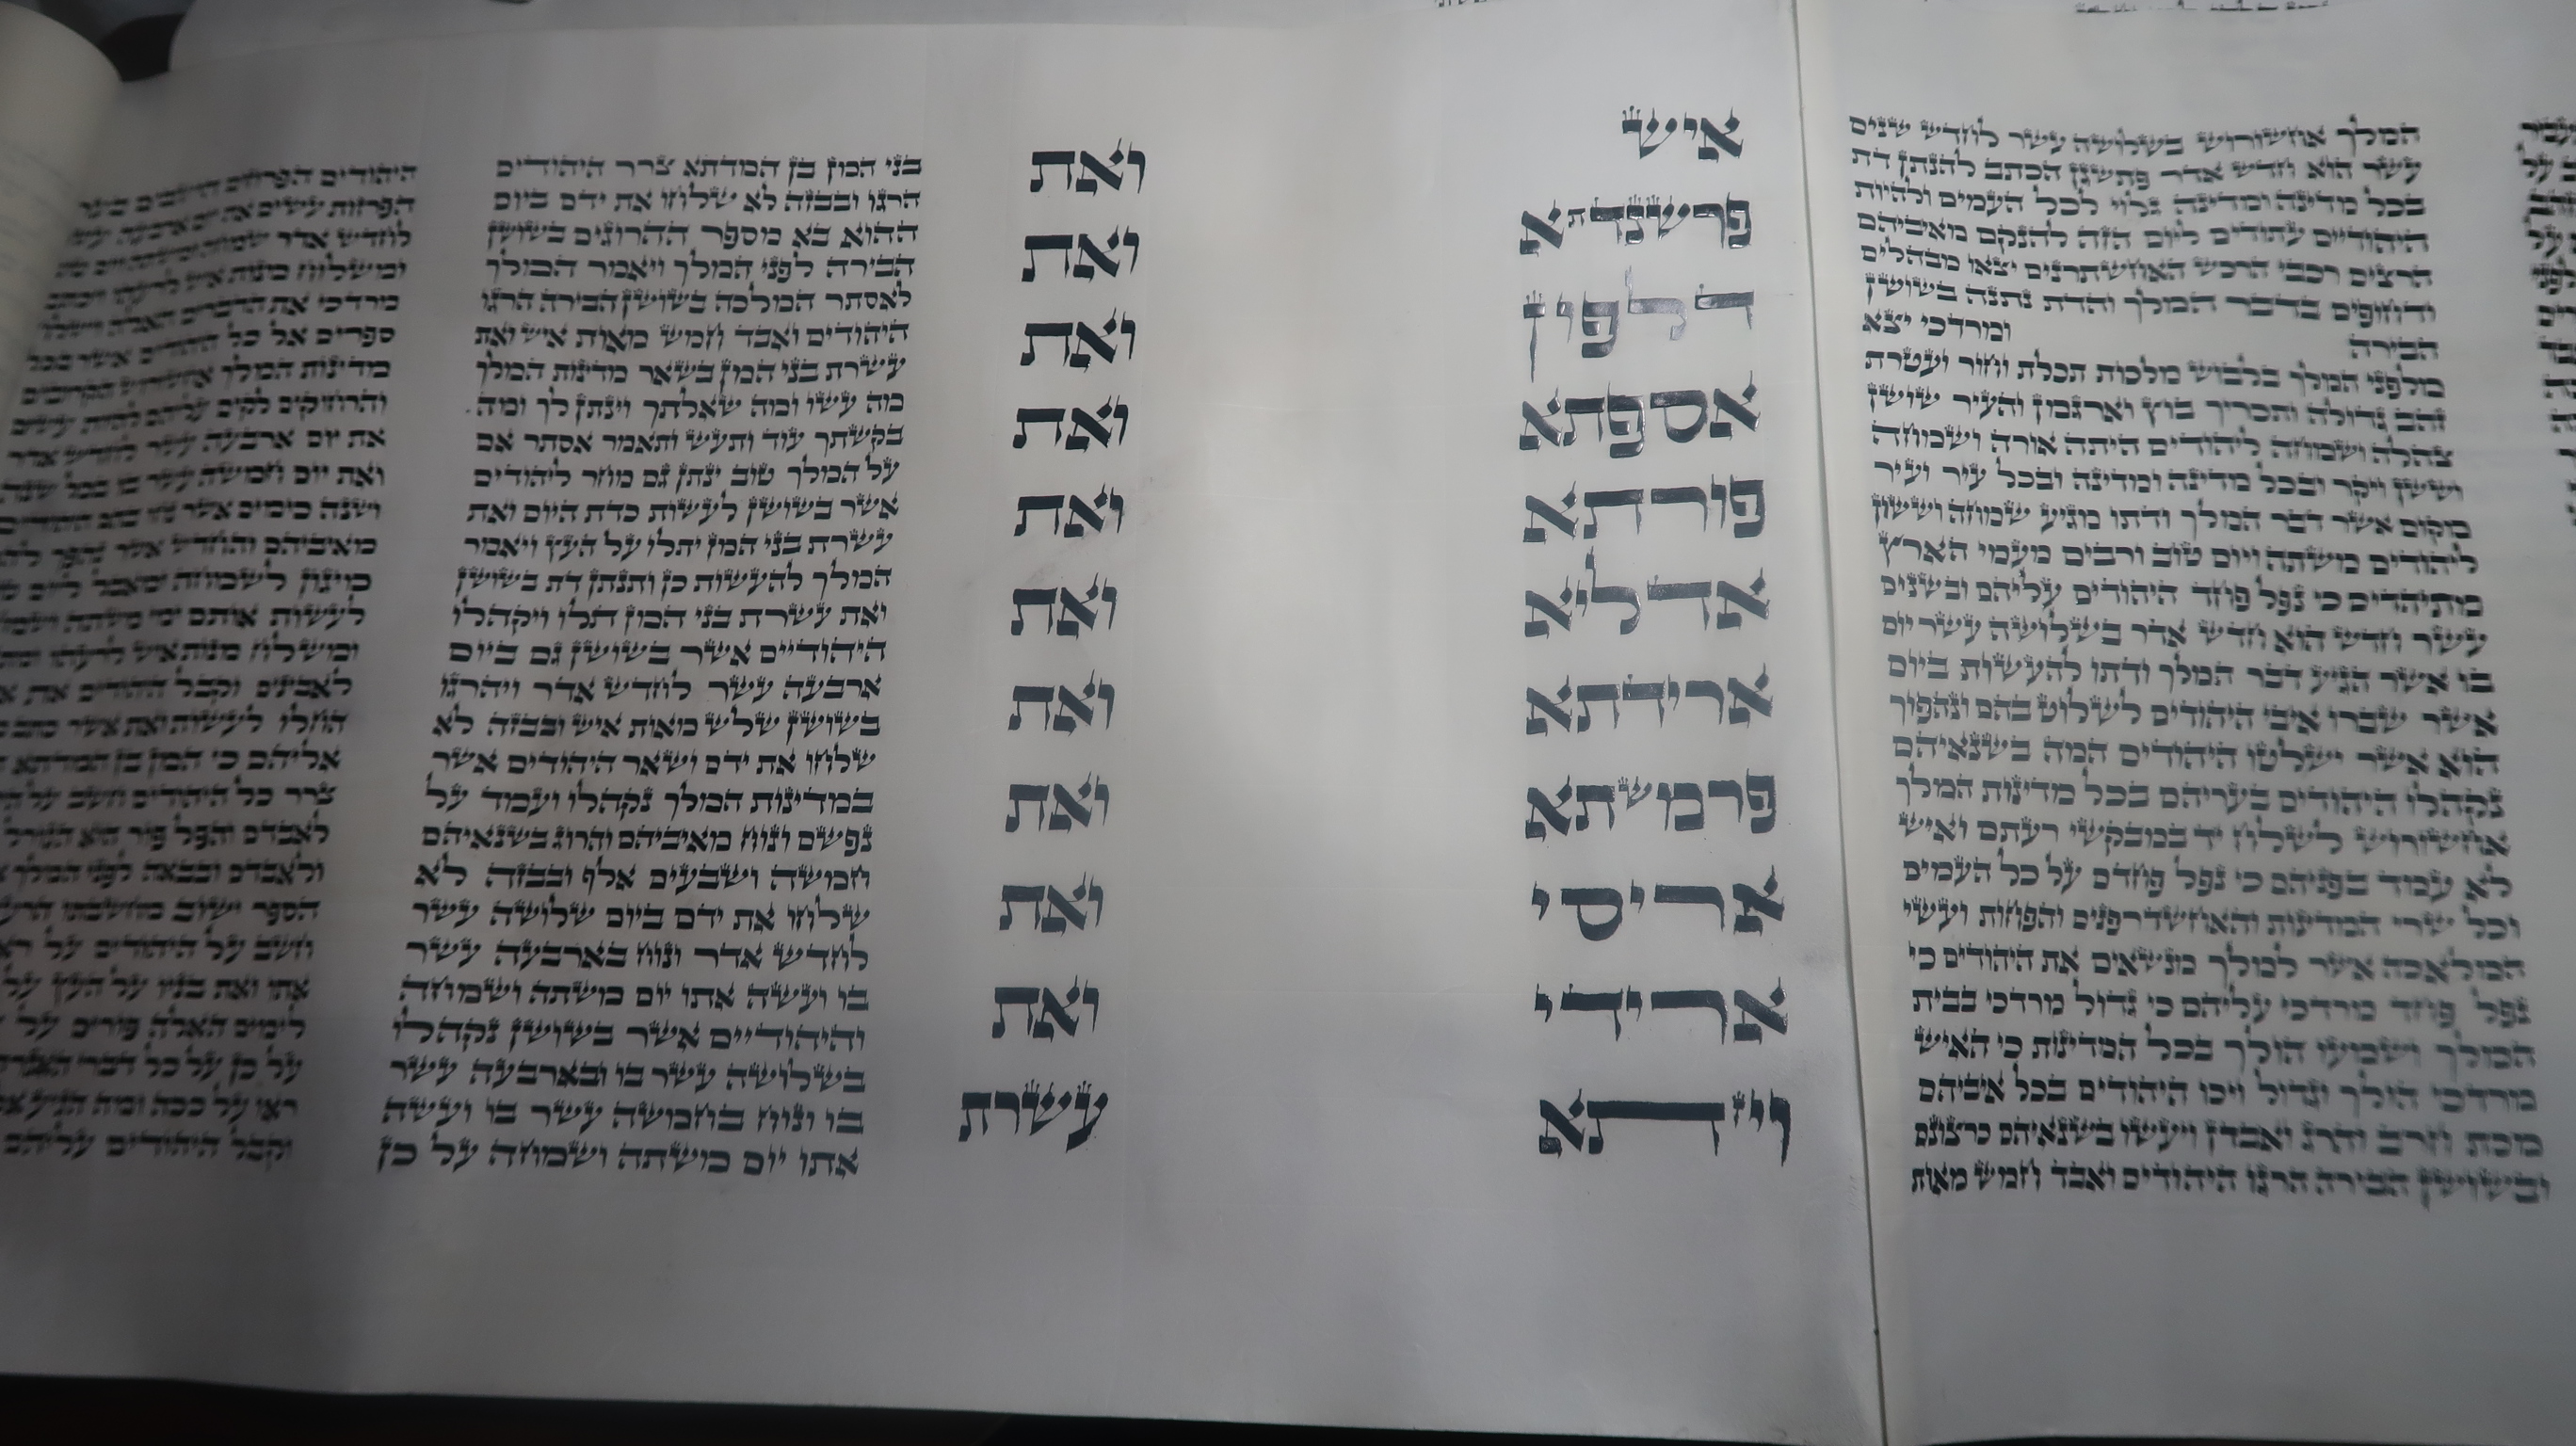 המלך אחשורוש בשלושה עשר לחדש שנים
עשר הוא חדש אדר פתשגן הכתב להנתן דת
בכל מדינה ומדינה גלוי לכל העמים ולהיות
היהודיים עתודים ליום הזה להנקם מאיביהם
הרצים רכבי הרכש האחשתרנים יצאו מבהלים
ודחופים בדבר המלך והדת נתנה בשושן
הבירה ומרדכי יצא
מלפני המלך בלבוש מלכות תכלת וחור ועטרת
זהב גדולה ותכריך בוץ וארגמן והעיר שושן
צהלה ושמחה ליהודים היתה אורה ושמחה
וששן ויקר ובכל מדינה ומדינה ובכל עיר ועיר
מקום אשר דבר המלך ודתו מגיע שמחה וששון
ליהודים משתה ויום טוב ורבים מעמי הארץ
מתיהדים כי נפל פחד היהודים עליהם ובשנים
עשר חדש הוא חדש אדר בשלושה עשר יום
בו אשר הגיע דבר המלך ודתו להעשות ביום
אשר שברו איבי היהודים לשלוט בהם ונהפוך
הוא אשר ישלטו היהודים המה בשנאיהם
נקהלו היהודים בעריהם בכל מדינות המלך
אחשורוש לשלח יד במבקשי רעתם ואיש
לא עמד בפניהם כי נפל פחדם על כל העמים
וכל שרי המדינות והאחשדרפנים והפחות ועשי
המלאכה אשר למלך מנשאים את היהודים כי
נפל פחד מרדכי עליהם כי גדול מרדכי בבית
המלך ושמעו הולך בכל המדינות כי האיש
מרדכי הולך וגדול ויכו היהודים בכל איביהם
מכת חרב והרג ואבדן ויעשו בשנאיהם כרצונם
ובשושן הבירה הרגו היהודים ואבד חמש מאות
איש ואת
פרשנדתא ואת
דלפון ואת
אספתא ואת
פורתא ואת
אדליא ואת
ארידתא ואת
פרמשתא ואת
אריסי ואת
ארידי ואת
ויזתא עשרת
בני המן בן המדתא צרר היהודים
הרגו ובבזה לא שלחו את ידם ביום
ההוא בא מספר ההרוגים בשושן
הבירה לפני המלך ויאמר המלך
לאסתר המלכה בשושן הבירה הרגו
היהודים ואבד חמש מאות איש ואת
עשרת בני המן בשאר מדינות המלך
מה עשו ומה שאלתך וינתן לך ומה
בקשתך עוד ותעש ותאמר אסתר אם
על המלך טוב ינתן גם מחר ליהודים
אשר בשושן לעשות כדת היום ואת
עשרת בני המן יתלו על העץ ויאמר
המלך להעשות כן ותנתן דת בשושן
ואת עשרת בני המן תלו ויקהלו
היהודיים אשר בשושן גם ביום
ארבעה עשר לחדש אדר ויהרגו
בשושן שלש מאות איש ובבזה לא
שלחו את ידם ושאר היהודים אשר
במדינות המלך נקהלו ועמד על
נפשם ונוח מאיביהם והרוג בשנאיהם
חמשה ושבעים אלף ובבזה לא
שלחו את ידם ביום שלושה עשר
לחדש אדר ונוח בארבעה עשר
בו ועשה אתו יום משתה ושמחה
והיהודיים אשר בשושן נקהלו
בשלושה עשר בו ובארבעה עשר
בו ונוח בחמשה עשר בו ועשה
אתו יום משתה ושמחה על כן
היהודים הפרזים הישבים בערי
הפרזות עשים את יום ארבעה עשר
לחדש אדר שמחה ומשתה ויום טוב
ומשלח מנות איש לרעהו ויכתב
מרדכי את הדברים האלה וישלח
ספרים אל כל היהודים אשר בכל
מדינות המלך אחשורוש הקרובים
והרחוקים לקים עליהם להיות עשים
את יום ארבעה עשר לחדש אדר
ואת יום חמשה עשר בו בכל שנה
ושנה כימים אשר נחו בהם היהודים
מאיביהם והחדש אשר נהפך
מיגון לשמחה ומאבל ליום
לעשות אותם ימי משתה
ומשלח מנות איש לרעהו
לאבינים וקבל היהודים את
החלו לעשות ואת אשר כתב
אליהם כי המן בן המדתא
צרר כל היהודים חשב על
לאבדם והפל פור הוא הגורל
ולאבדם ובבאה לפני המלך
הספר ישוב מחשבתו
חשב על היהודים על
אתו ואת בניו על העץ על
לימים האלה פורים על
על כן על כל דברי
ראו על ככה ומה הגיע
וקבל היהודים עליהם